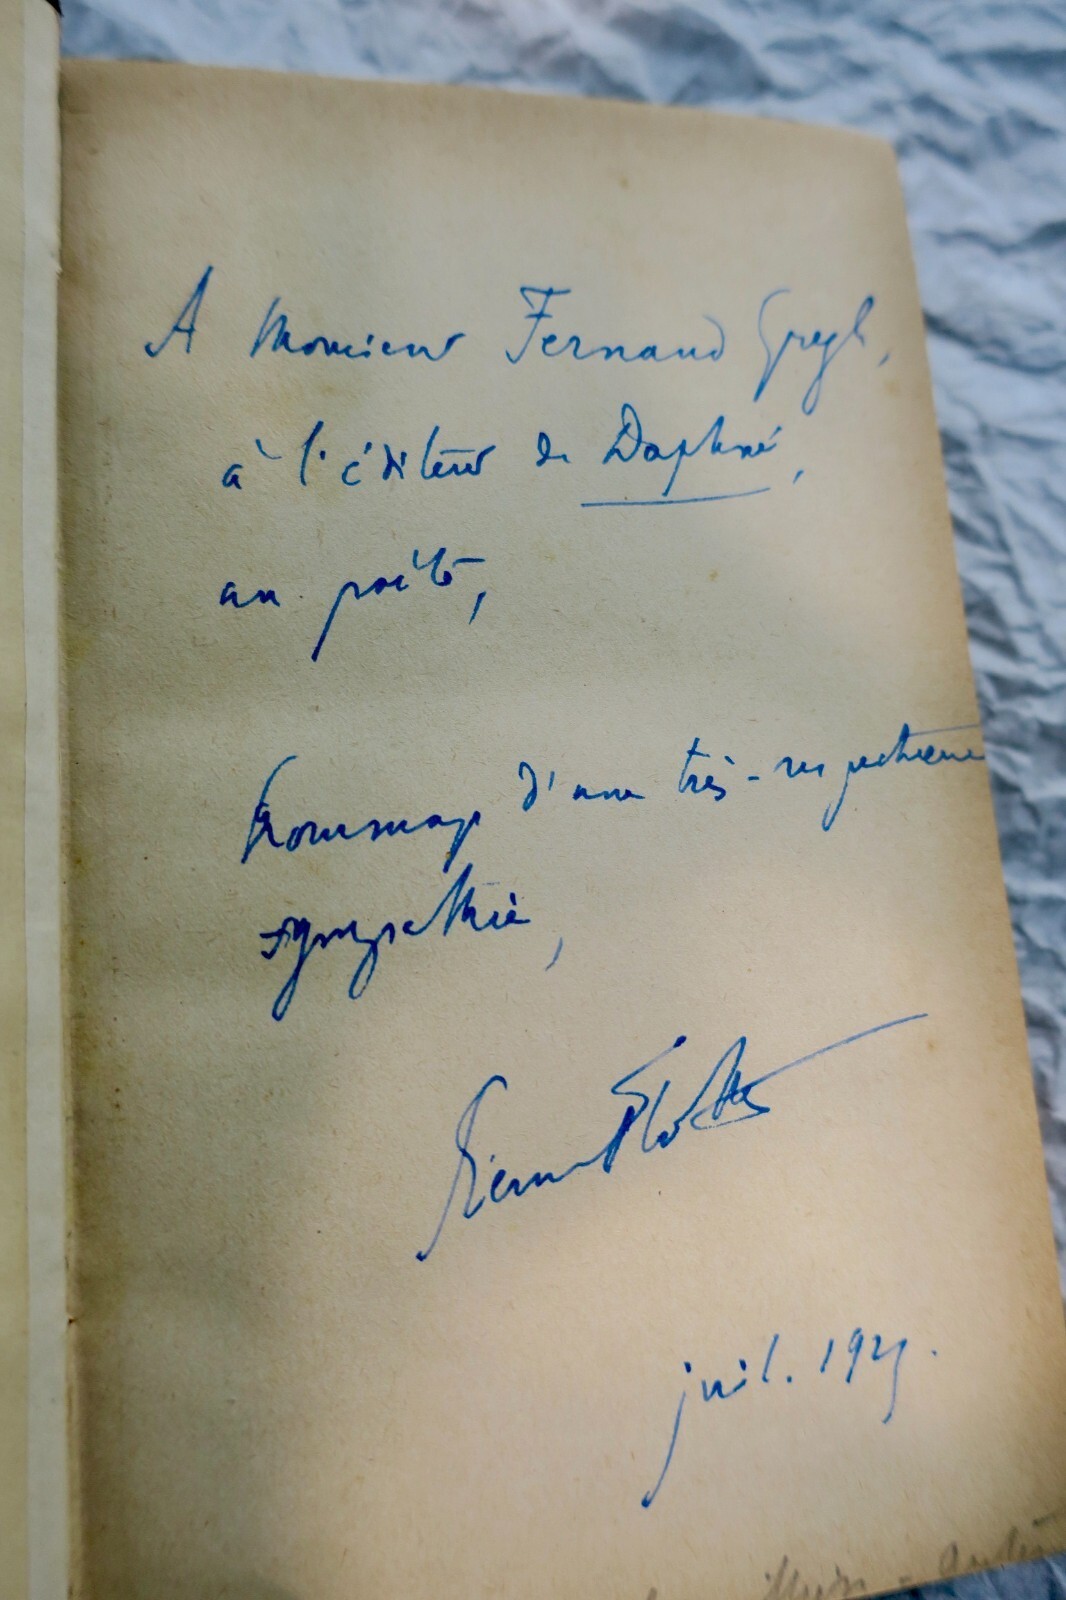 A Monsieur Fernand Gregh,
à l'éditeur de Daphné,
au poète,
hommage d'une très-respectueuse
sympathie,
Pierre Flottes
juil. 1929.